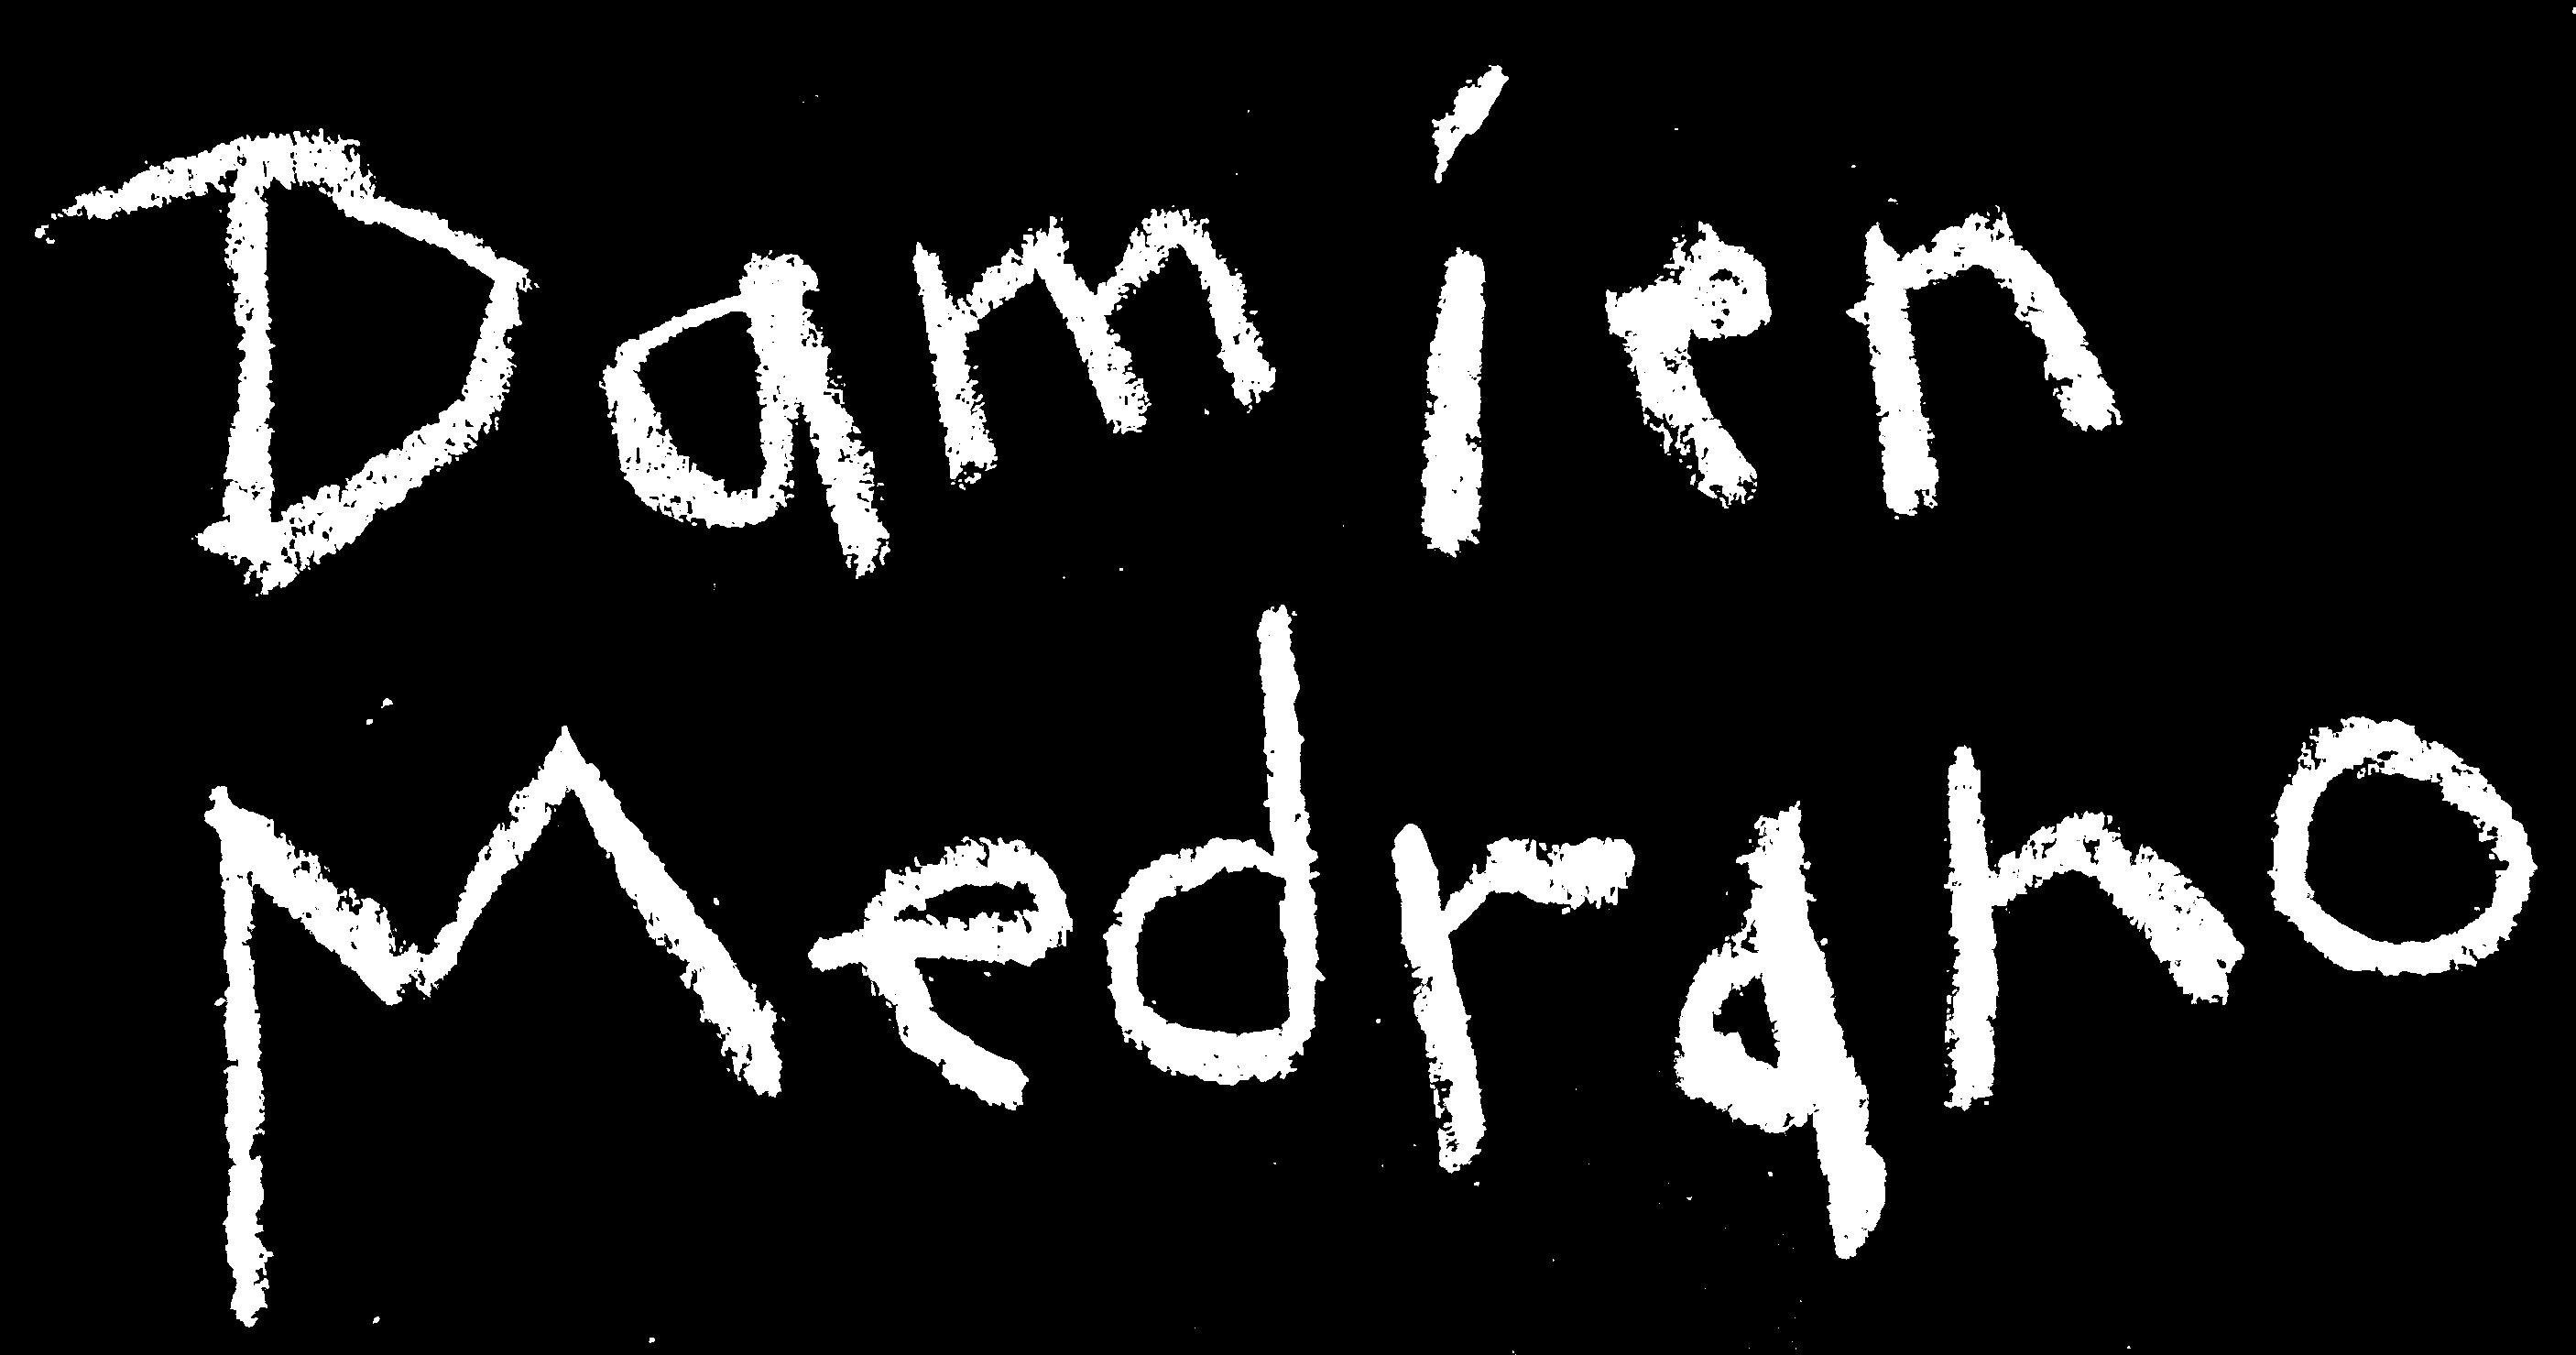 Damien
Medrano